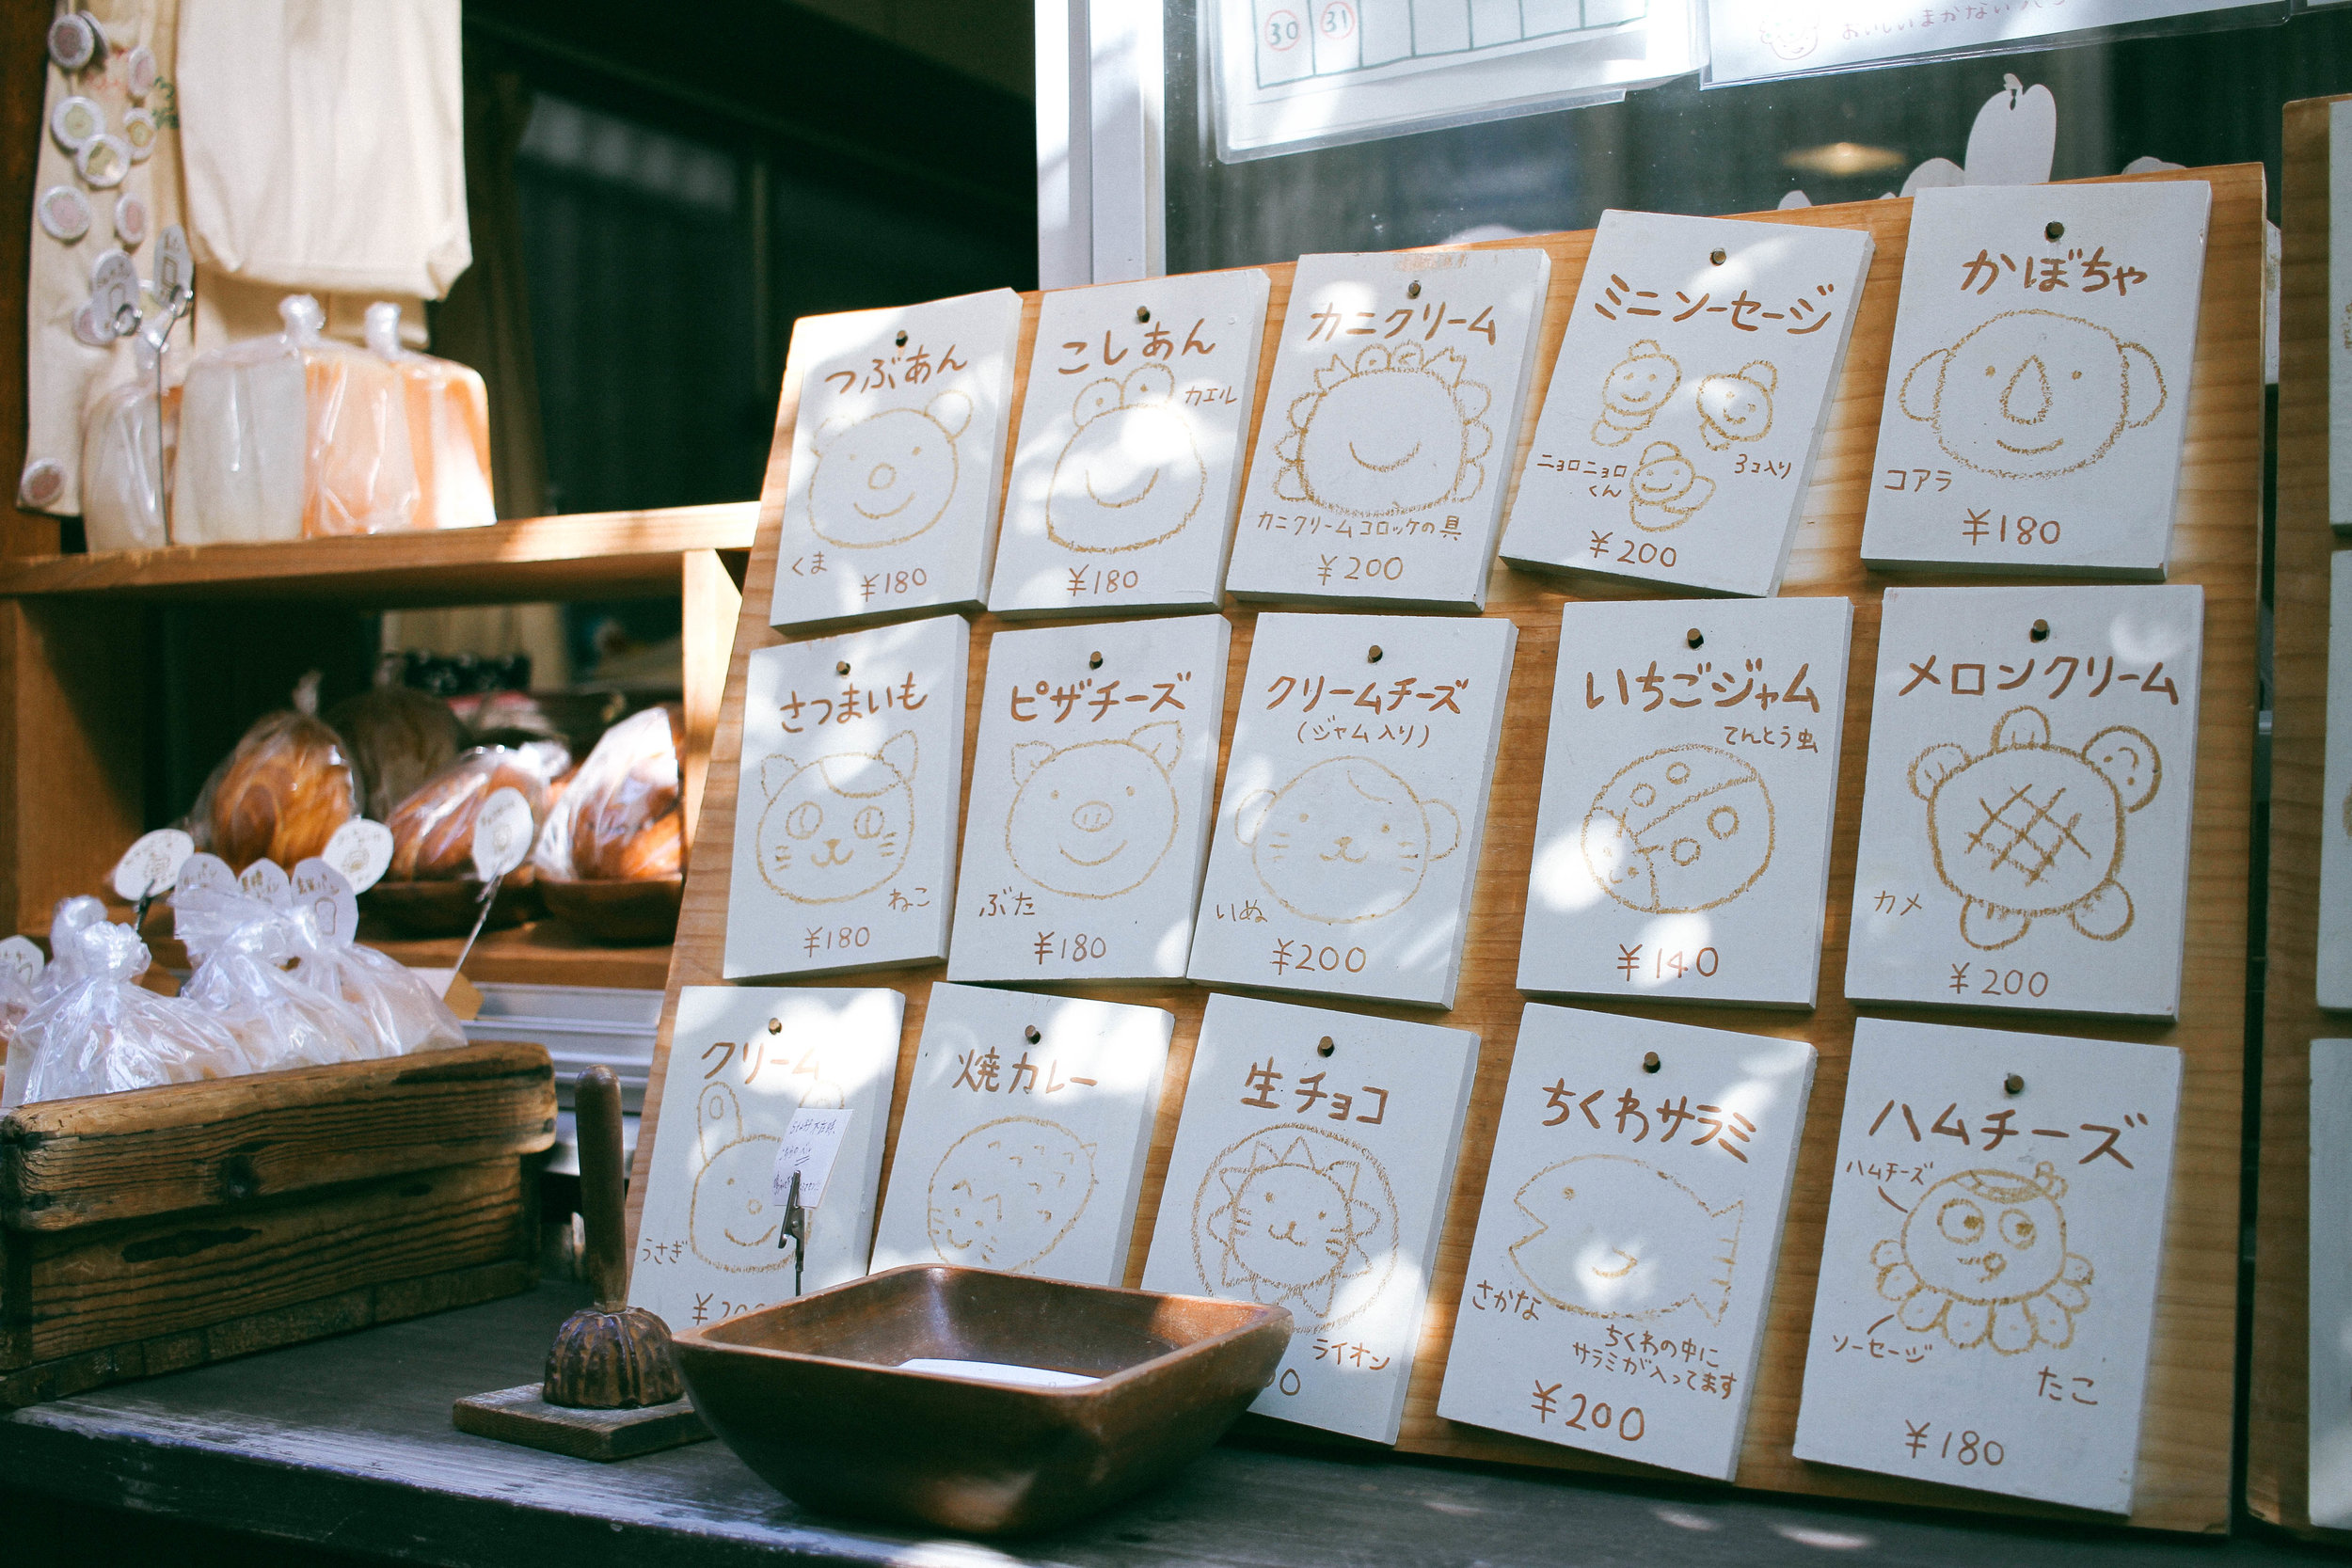 30 31
おいしいまかないパン
つぶあん
くま
¥180
こしあん
カエル
¥180
カニクリーム
カニクリームコロッケの具
¥200
ミニソーセージ
ニョロニョロ
くん
3コ入り
¥200
かぼちゃ
コアラ
¥180
さつまいも
ねこ
¥180
ピザチーズ
ぶた
¥180
クリームチーズ
(ジャム入り)
いぬ
¥200
いちごジャム
てんとう虫
¥140
メロンクリーム
カメ
¥200
クリーム
うさぎ
焼カレー
生チョコ
ライオン
ちくわサラミ
さかな
ちくわの中に
サラミが入ってます
¥200
ハムチーズ
ハムチーズ
ソーセージ
たこ
¥180